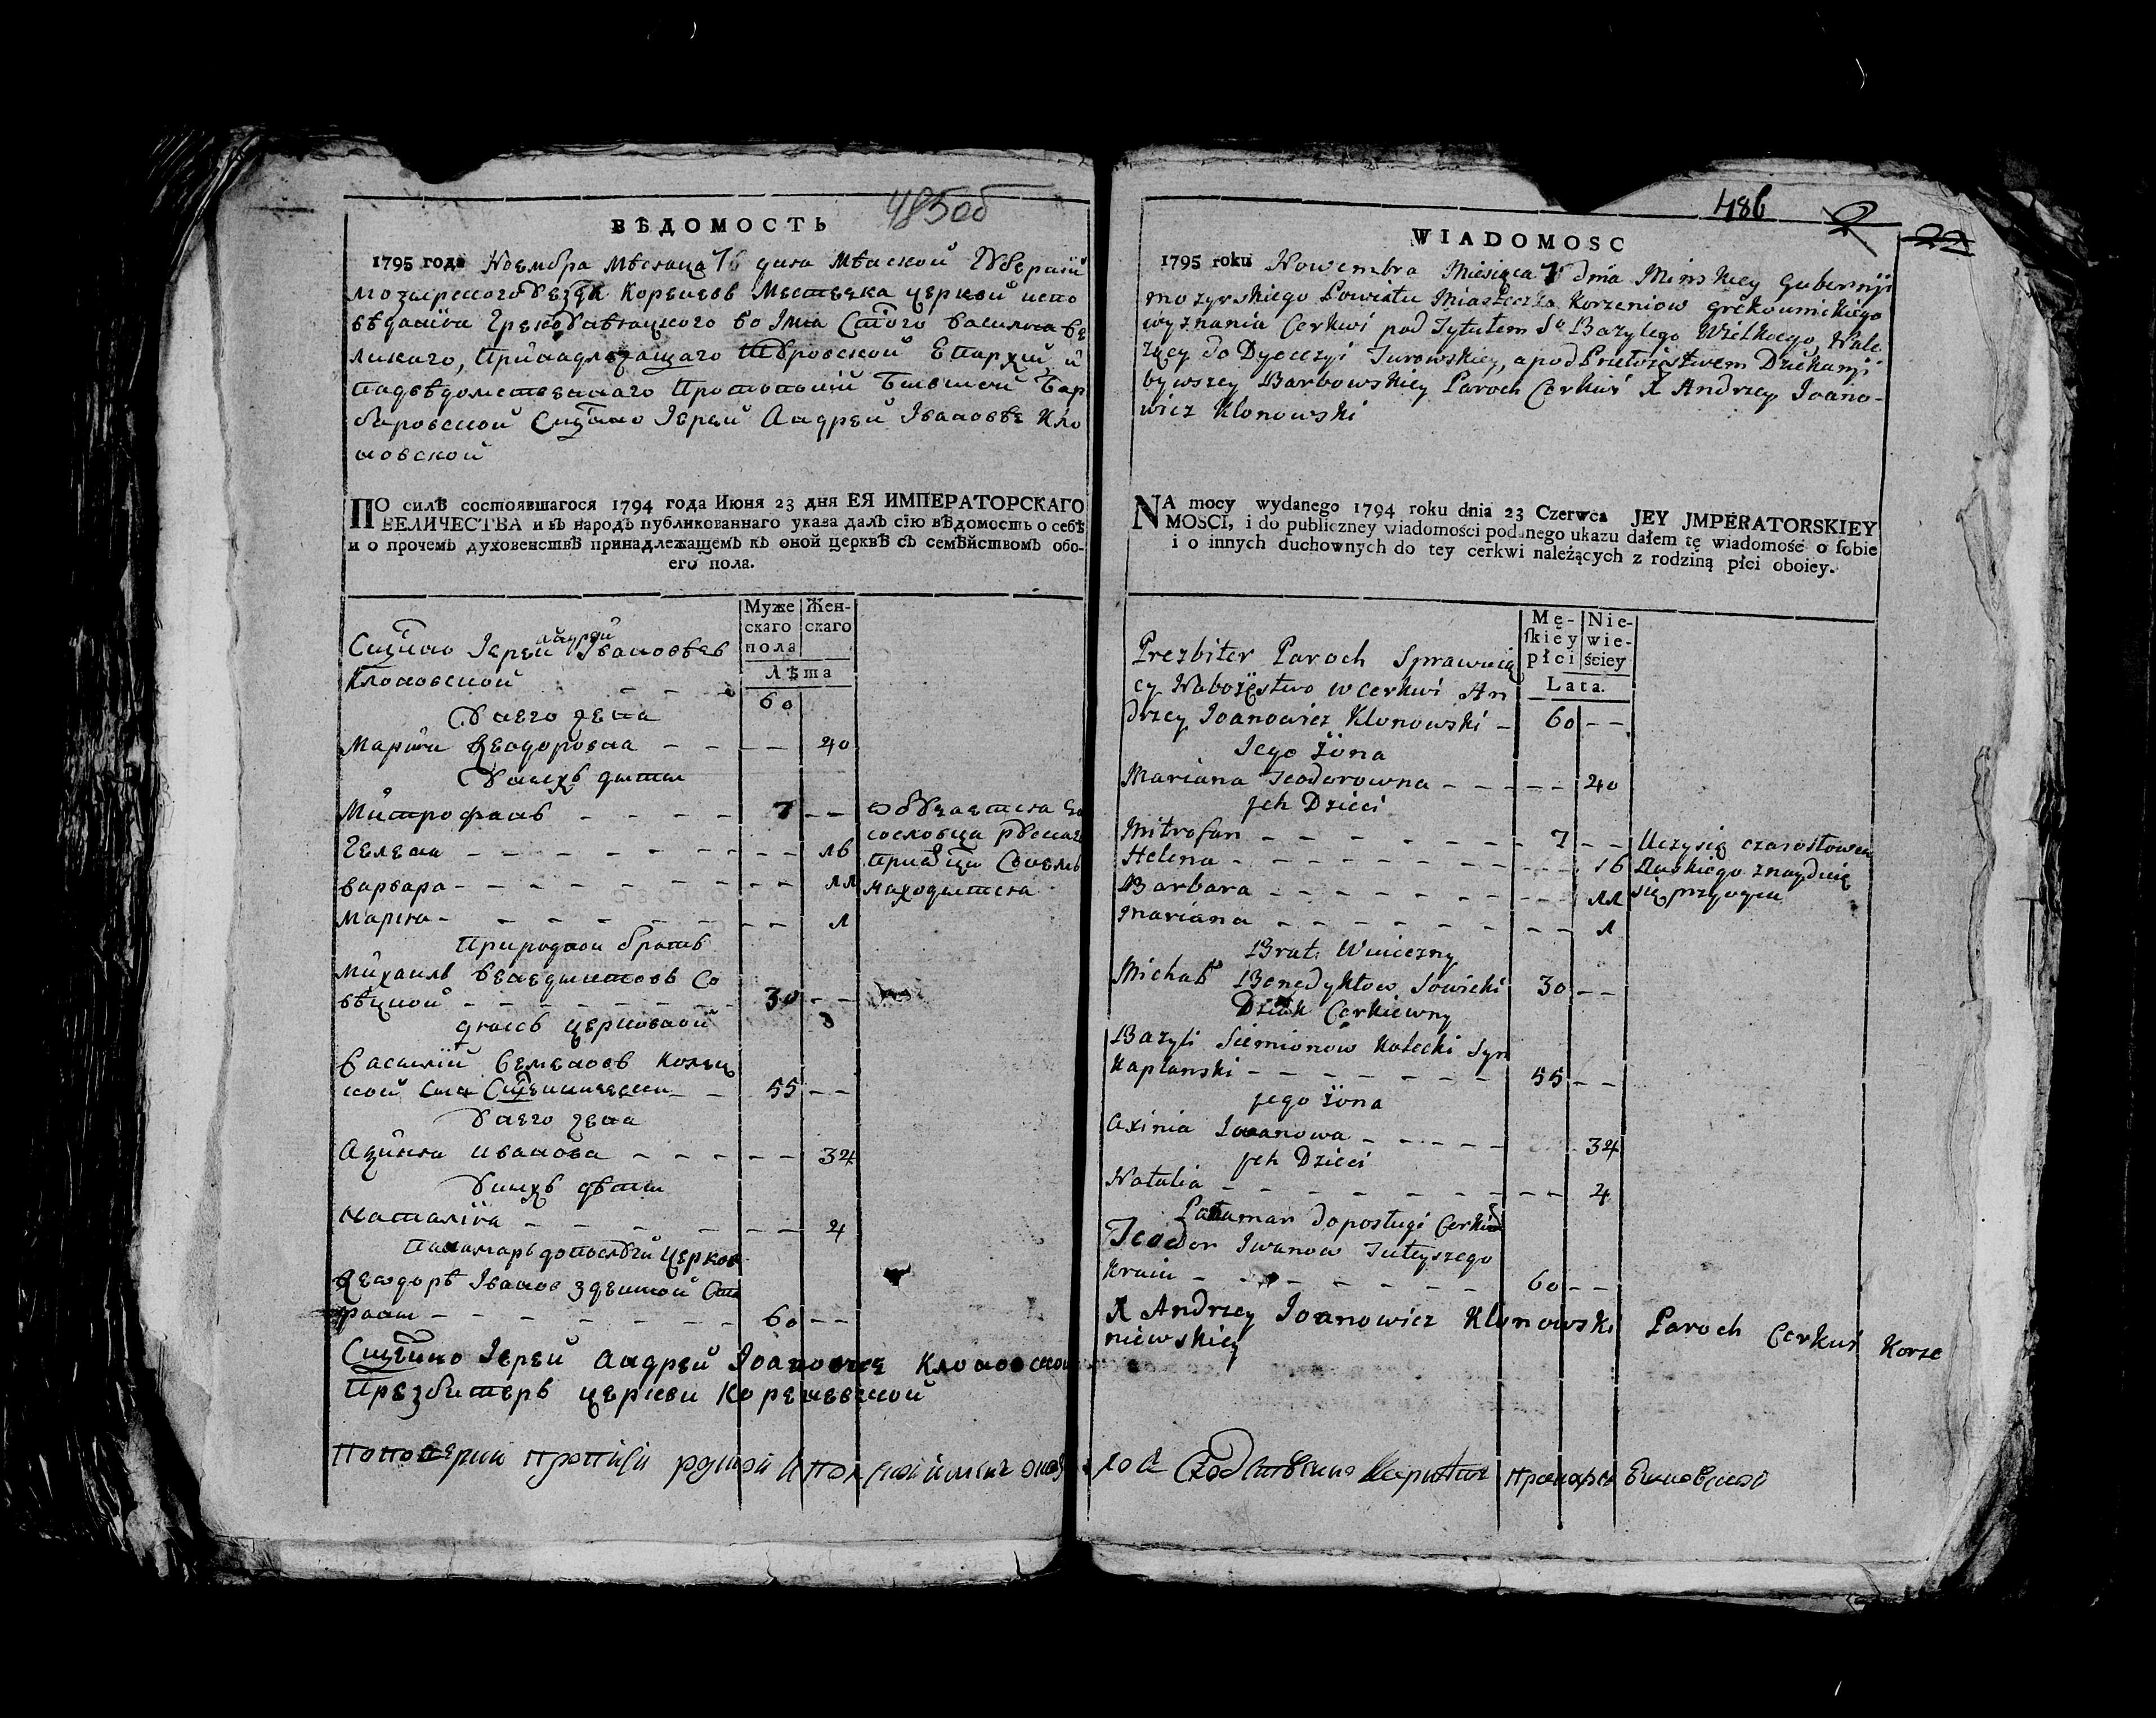 485об
ВѢДОМОСТЬ
1795 года Ноембра мѣсяца дня Мѣнской Губернiй
мозырского уезда Коренев Местечка церквй испо
вѣданiя Грекоунѣяцкого во Імя Стого Василия Ве
ликаго, Принадлежащаго Туровской Епархий й
подвѣдомственнаго Протопопiй Бывшой Бар
баровской Сщенно Іерей Андрей Івановъ Кло
новской
ПО силѣ состоявшагося 1794 года Июня 23 дня ЕЯ ИМПЕРАТОРСКАГО
ВЕЛИЧЕСТВА и въ народъ публикованнаго указа далъ сїю вѣдомость о себѣ
и о прочемъ духовенствѣ принадлежащемъ къ оной церквѣ съ семѣйствомъ обо-
его пола.
Муже
скаго
пола
Жен-
скаго
Лѣта
Сщенно Іерей Андрей Івановъ
Клоновской - - - 60
У него жена
Марiя Феодоровна - - - - 40
У нихъ дѣти
Мйтрофанъ - - - - 7 - - обучается
Гелена - - - - - - - - 16
Варвара - - - - - - - - 11 находится
Марiя - - - - - - - - 1
Природной братъ
Мйхаилъ Венедиктовъ Со
вѣцкой - - - - - - - - 30 - -
дячекъ церковной
Василiй Семеновъ Колец
кой Сын Сщеннически - - 55 - -
У него жена
Аѯинiя иванова - - - - - 34
У нихъ дѣти
Наталiя - - - - - - - 4
Паламарь до послуги церков
Феодоръ Іванов здешной Сто
роны - - - - - - - 60 - -
Сщенно Іерей Андрей Іоанович Клоновской
Презбитеръ церкви Кореневской
486
22
WIADOMOSC
1795 roku Nowembra Miesiąca 7 dnia Minskiey Gubernji
mozyrskiego Powiatu Miasteczka Korzeniow grekounickiego
wyznania Cerkwi pod Tytułem So Bazylego Wielkiego, Nale
zący do Dyecezyi Turowskiey, a pod Dziekanji
bywszey Barbowskiey Paroch Cerkwi X Andrzey Joano-
wicz Klonowski
NA mocy wydanego 1794 roku dnia 23 Czerwca JEY JMPERATORSKIEY
MOSCI, i do publiczney wiadomości podanego ukazu dałem tę wiadomość o sobie
i o innych duchownych do tey cerkwi należących z rodziną płci oboiey.
Mę-
skiey
płci
Nie-
wie-
ściey
Lata.
Prezbiter Paroch Sprawuią
cy Nabożęstwo w cerkwi An
drzey Joanowicz Klonowski - 60 - -
Jego żona
Mariana Teodorowna - - - - - 40
jch Dzieci
Mitrofan - - - - - - - 7 - - Uczy się czarosłowca
Helena - - - - - - - - - 16 Ruskiego znayduię
Barbara - - - - - - - - 11 się przy oycu
Mariana - - - - - - - - 1
Brat
Michał Benedyktow Sowicki 30 - -
Dziak Cerkiewny
Bazyli Siemionow Kolecki Syn
Kapłanski - - - - - - - 55 - -
jego żona
Axinia Iwanowa - - - - - 34
jch Dzieci
Natalia - - - - - - - - 4
Palamar do posługi Cerkiew
Teodor Iwanow Tuteyszego
Kraiu - - - - - - - 60 - -
X Andrzey Joanowicz Klonowski Paroch Cerkwi Korze
niewskiey